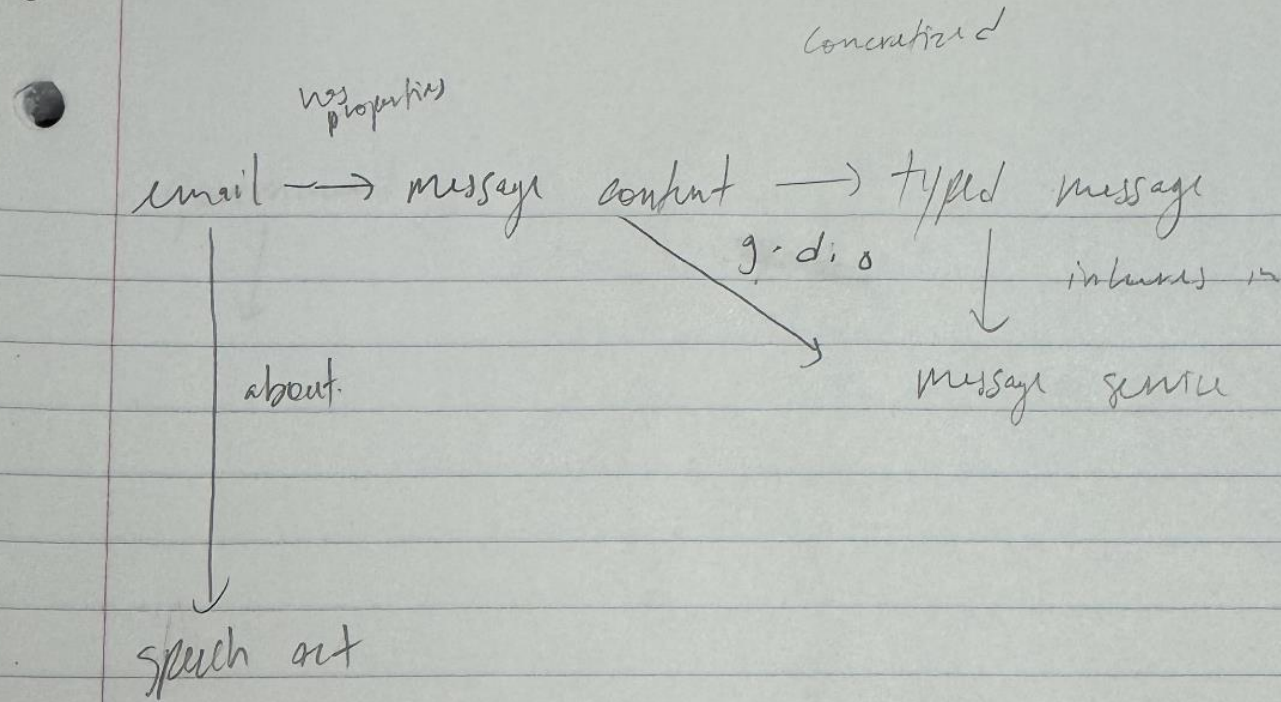 concretized
has
properties
email → message content → typed message
g.d.o inheres in
about.
message service
speech act